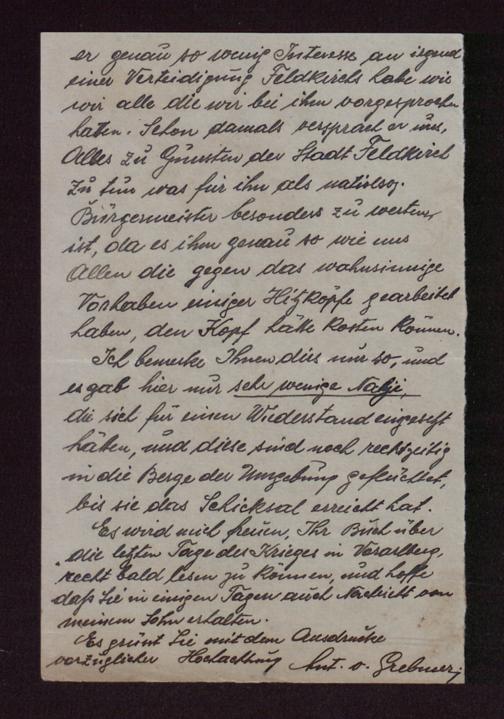 er genau so wenig Interesse an irgend
einer Verteidigung Feldkirchs habe wie
wir alle die wir bei ihm vorgesprochen
hatten. Schon damals versprach er uns,
Alles zu Gunsten der Stadt Feldkirch
zu tun was für ihn als natiolsoz.
Bürgermeister besonders zu werten
ist, da es ihm genau so wie uns
Allen die gegen das wahnsinnige
Vorhaben einiger Hitzköpfe gearbeitet
haben, den Kopf hätte kosten können.
Ich bemerke Ihnen dies nur so, und
es gab hier nur sehr wenige
die sich für einen Wiederstand eingesetzt
hätten, und diese sind noch rechtzeitig
in die Berge der Umgebung geflüchtet,
bis sie das Schicksal erreicht hat.
Es wird mich freuen, Ihr Buch über
die letzten Tage des Krieges in Vorarlberg,
recht bald lesen zu können, und hoffe
daß Sie in einigen Tagen auch Nachricht von
meinem Sohn erhalten.
Es grüsst Sie mit dem Ausdrucke
vorzüglicher Hochachtung Ant. v. Grebmer